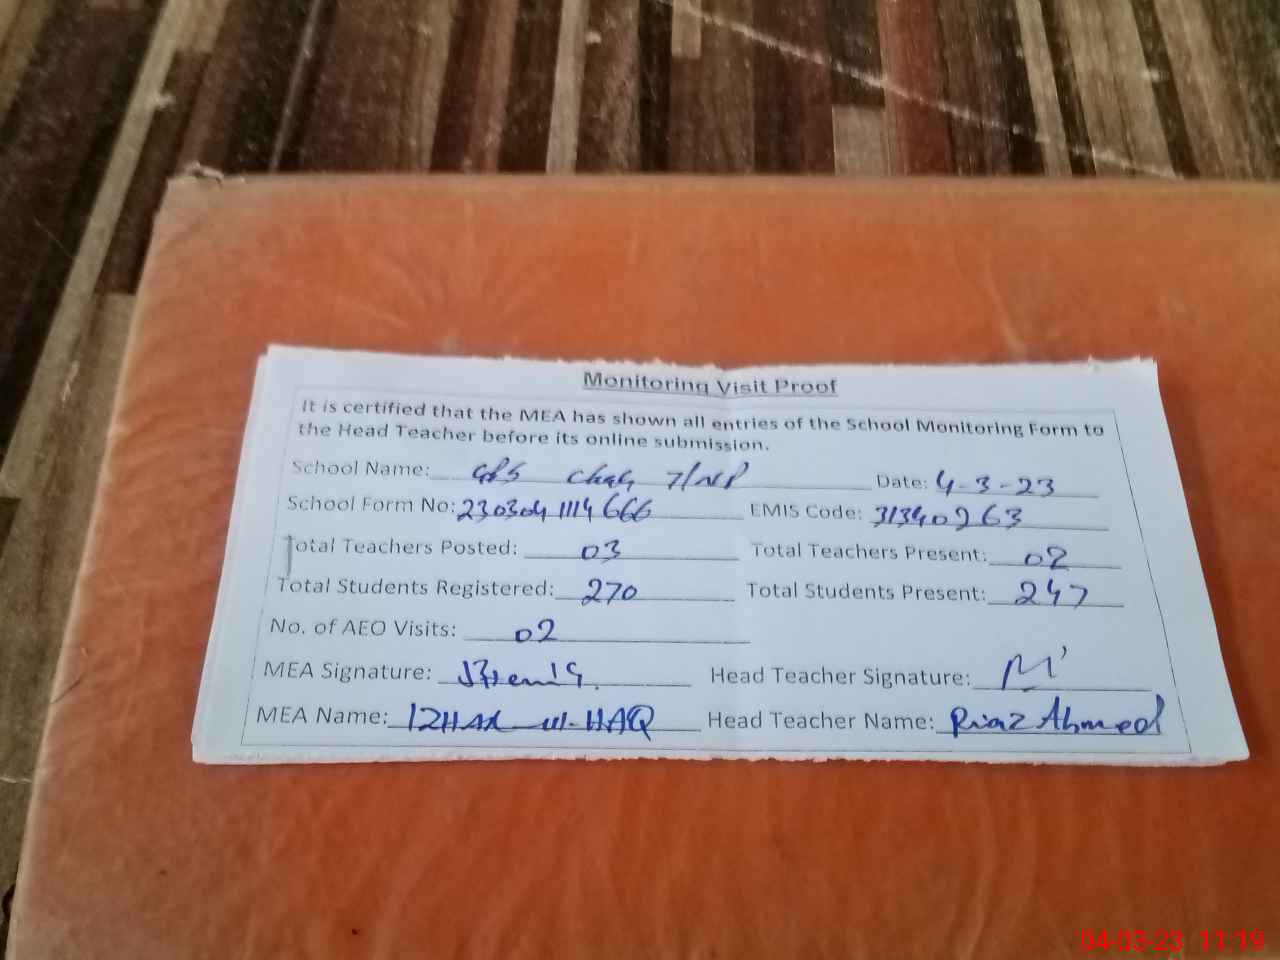 Monitoring Visit Proof
It is certified that the MEA has shown all entries of the School Monitoring Form to
the Head Teacher before its online submission.
School Name: GPS Chak 7/NP Date: 4-3-23
School Form No: 230304 1114 666 EMIS Code: 31340263
Total Teachers Posted: 03 Total Teachers Present: 02
Total Students Registered: 270 Total Students Present: 247
No. of AEO Visits: 02
MEA Signature: Head Teacher Signature:
MEA Name: IZHAR-ul-HAQ Head Teacher Name: Riaz Ahmed
04-03-23 11:19